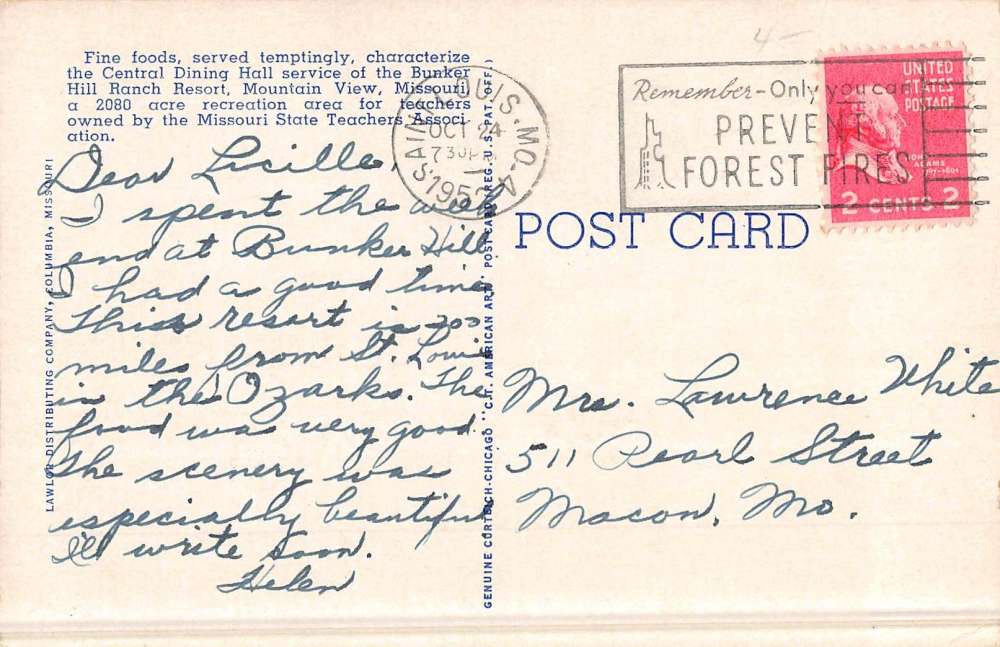 4-
Fine foods, served temptingly, characterize
the Central Dining Hall service of the Bunker
Hill Ranch Resort, Mountain View, Missouri,
a 2080 acre recreation area for teachers
owned by the Missouri State Teachers Associ-
ation.
Dear Lucille,
I spent the week
end at Bunker Hill.
I had a good time
This resort is 200
miles from St. Louis
in the Ozarks. The
food was very good.
The scenery was
especially beautiful
I'll write soon.
Helen
LAWLOR DISTRIBUTING COMPANY, COLUMBIA, MISSOURI
GENUINE CURTEICH-CHICAGO "C.T. AMERICAN ART" POST CARD (REG. U.S. PAT. OFF.)
SAINT LOUIS, MO.
OCT 24
730 PM
Remember-Only you can
PREVENT
FOREST FIRES
UNITED
STATES
POSTAGE
JOHN
ADAMS
2 CENTS 2
POST CARD
Mrs. Lawrence White
511 Pearl Street
Macon, Mo.